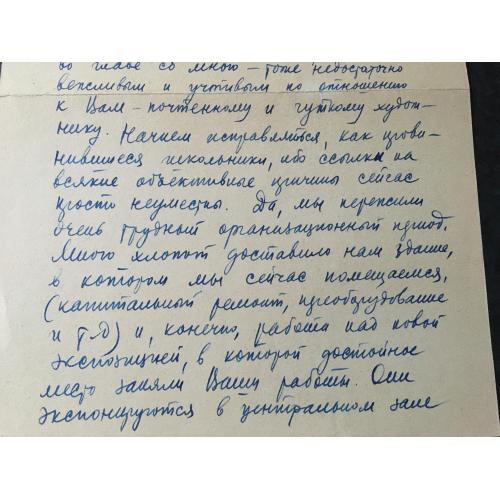 во главе со мною – тоже недостаточно
вежливым и учтивым по отношению
к Вам – почтенному и чуткому худож-
нику. Начнем исправляться, как прови-
нившиеся школьники, ибо ссылки на
всякие объективные причины сейчас
просто неуместны. Да, мы пережили
очень трудный организационный период.
Много хлопот доставило нам здание,
в котором мы сейчас помещаемся,
(капитальный ремонт, преоборудование
и т.д) и, конечно, работа над новой
экспозицией, в которой достойное
место заняли Ваши работы. Они
экспонируются в центральном зале